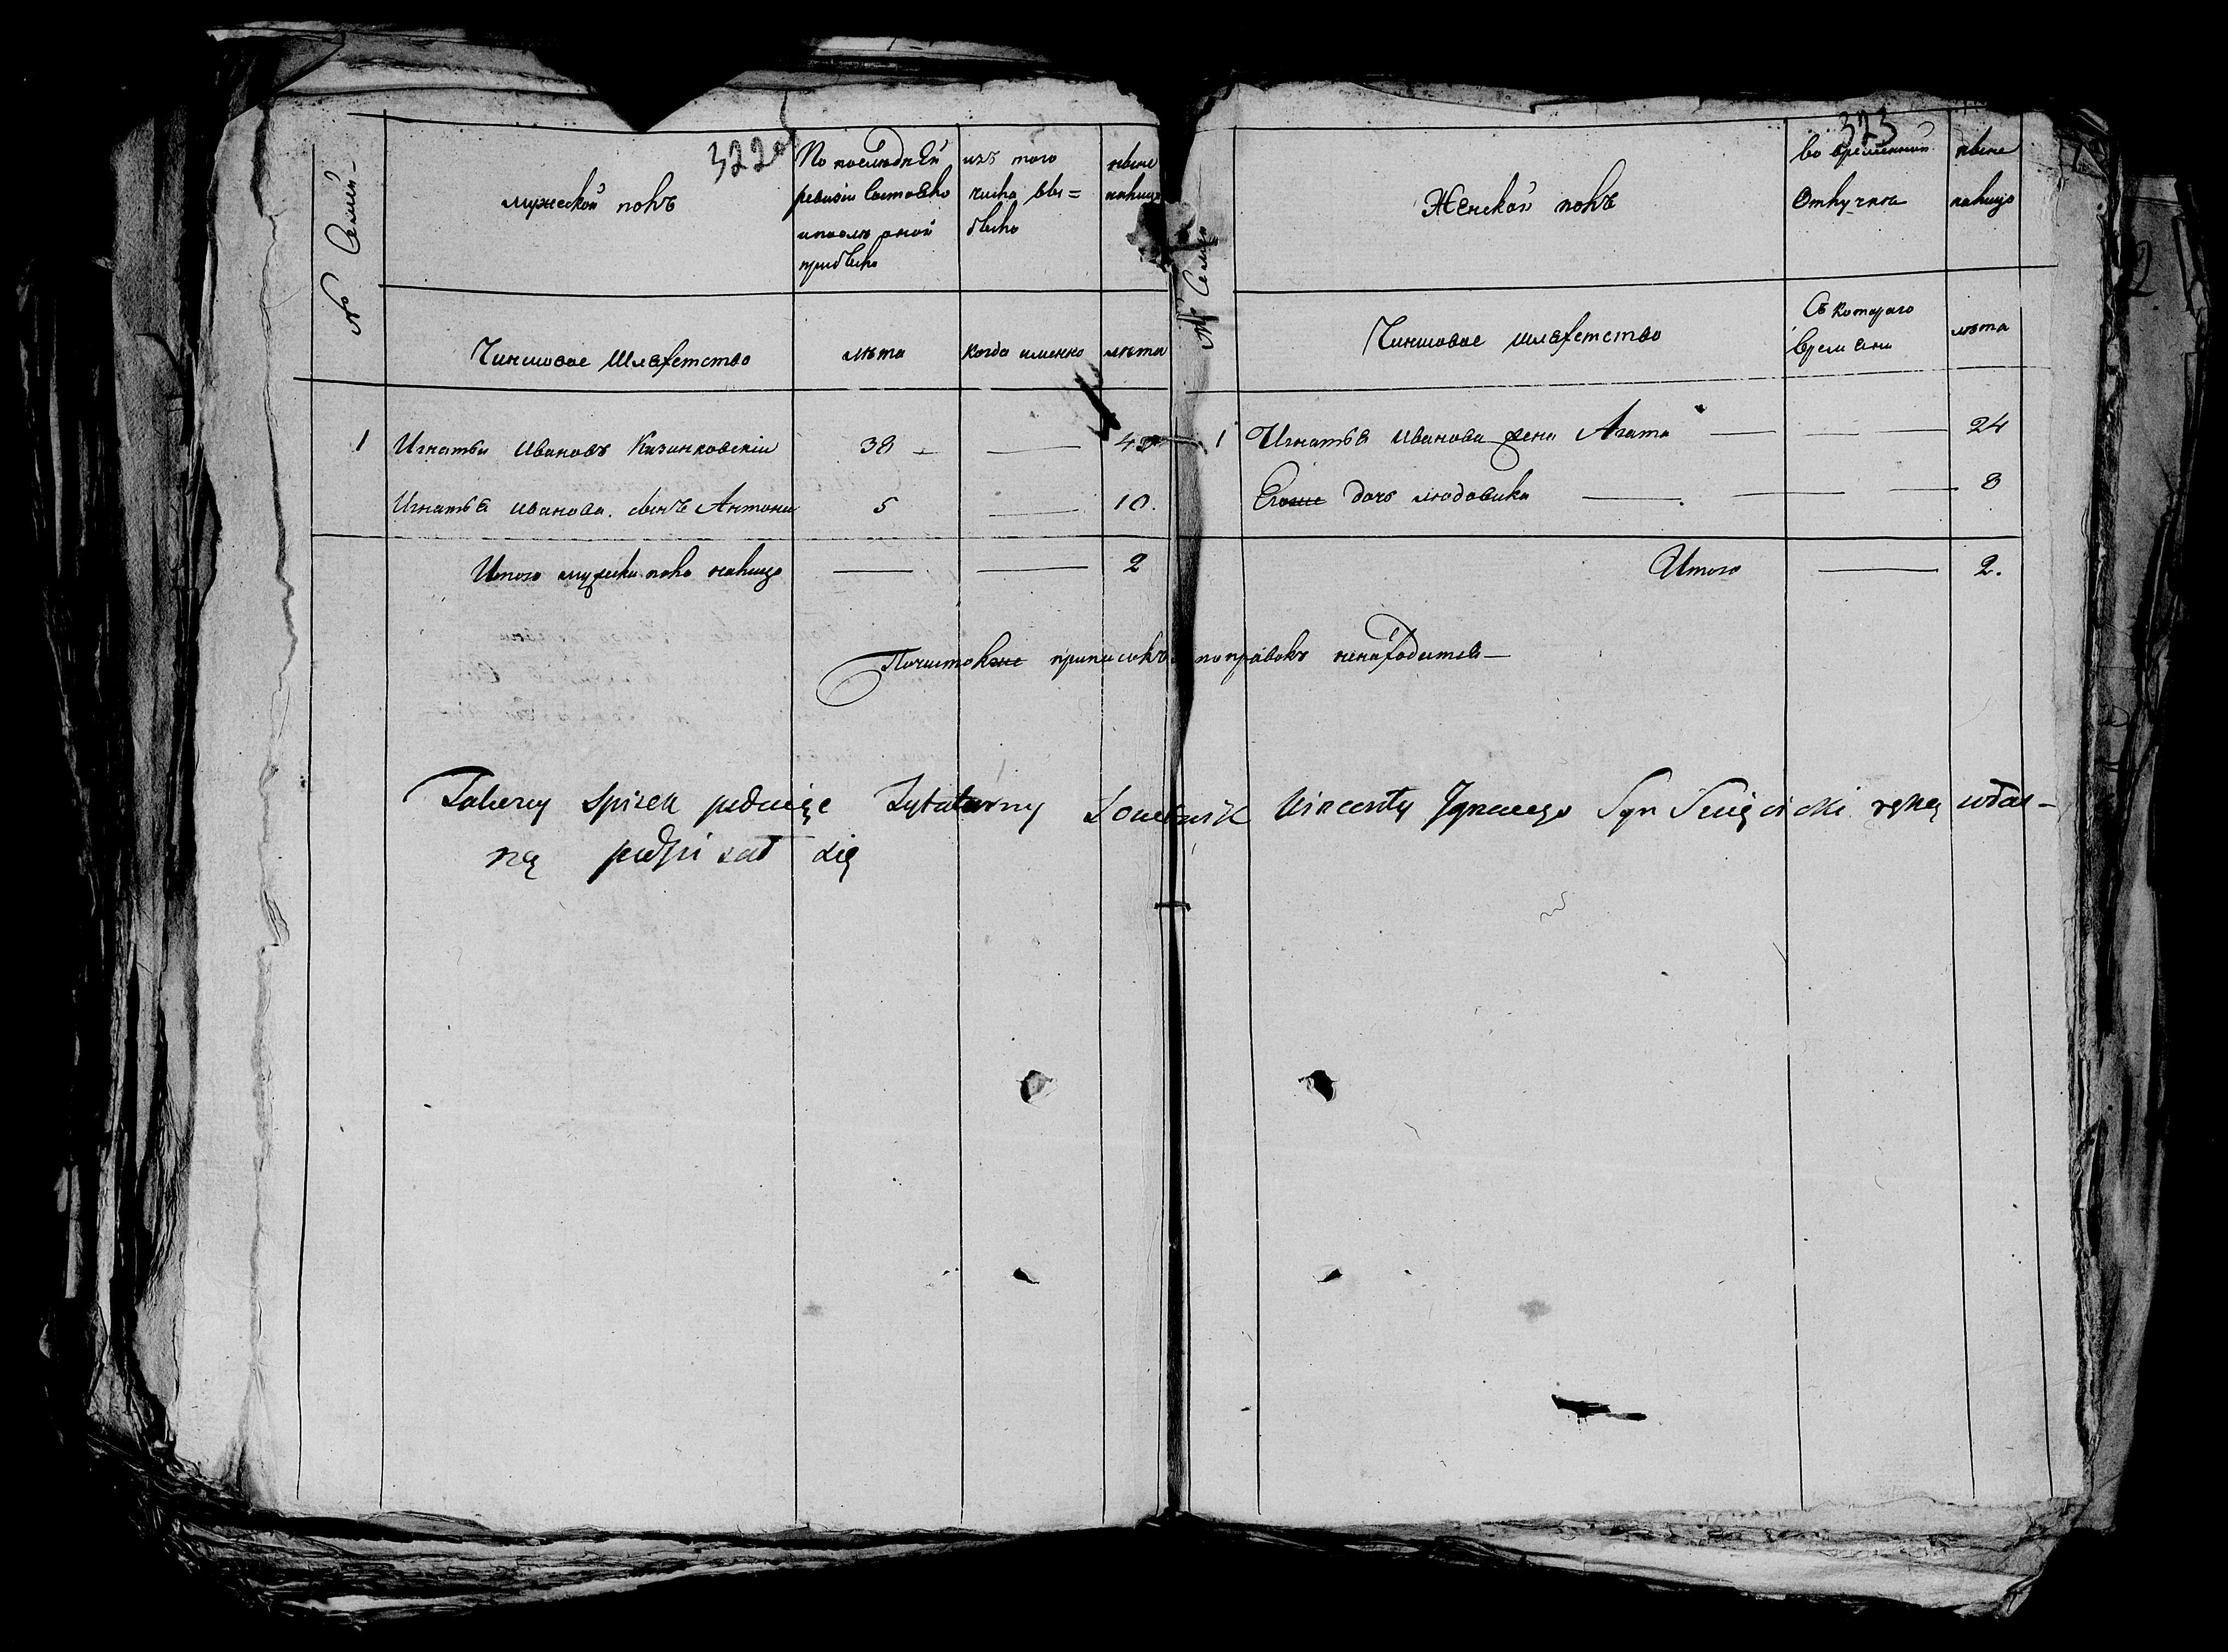 322
№ Семей
мужескои полъ
По последней
ревизiи Состояло
и после оной
прибыло
изъ того
числа вы=
было
ныне
налицо
Чиншовое Шляхетство
лѣта
когда именно
лѣта
1 Игнатьи Ивановъ Казинковскiи 38 — 43
Игнатья Иванова. сынъ Антони 5 — 10.
Итого мужска пола налицо — — 2
323
№ Семей
Женской полъ
во временной
Отлучки
ныне
налицо
Чиншовое шляхетство
Съ котораго
времени
лѣта
1 Игнатья Иванова жена Агата — — — 24
Егоже дочь людовика — — — 8
Итого — 2.
приписокъ поправокъ ненаходится —
Takowy Spisek podaiąc Tytularny Sowetnik Vincenty Jgnacego Syn Swięcicki ręką włas-
ną podpisał się